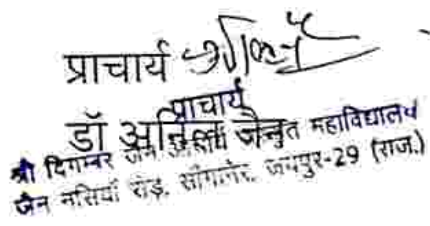 प्राचार्य
प्राचार्य
डॉ अनिल जैन
श्री दिगम्बर जैन महाविद्यालय
जैन नसियाँ रोड़, सांगानेर, जयपुर-29 (राज.)